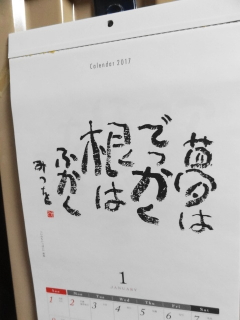 Calendar 2017
夢は
でっかく
根は
ふかく
みつを
1
Sun Mon Tue Wed Thu Fri Sat
1 2 3 4 5 6 7